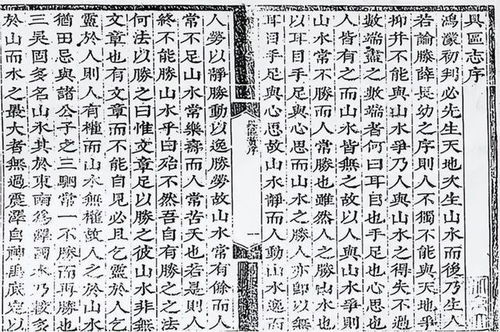 具區志序
鴻濛初判必先生天地次生山水而後乃生人
若論滕薛長幼之序則人不獨不能與天地爭
抑并不能與山水爭乃人與山水之得失不過
數端數端者何曰耳目也手足也心思也
人皆有之而山水皆無之故以人與山水爭則
人常勝山水常不勝也雖然人之勝山水亦即
以耳目手足與心思而山水之勝人亦即以無
耳目手足與心思故山水靜而人動山水逸而
人勞以靜勝動以逸勝勞故山水常有餘而人
常不足山水常樂壽而人常苦夭也若是則人
終不能勝山水乎曰殆不然吾自有勝之之法
何法以勝之曰惟文章足以勝之彼山水非無
文章也有文章而不能自見必且乞靈於人乞
靈於人則人有權而山水無權故人之於山水
猶田忌與諸公子之三駟常一不勝而再勝也
三吳固多名山水其於東南爲澤國水乃較多
於山而水之最大者無過震澤自神禹底定以